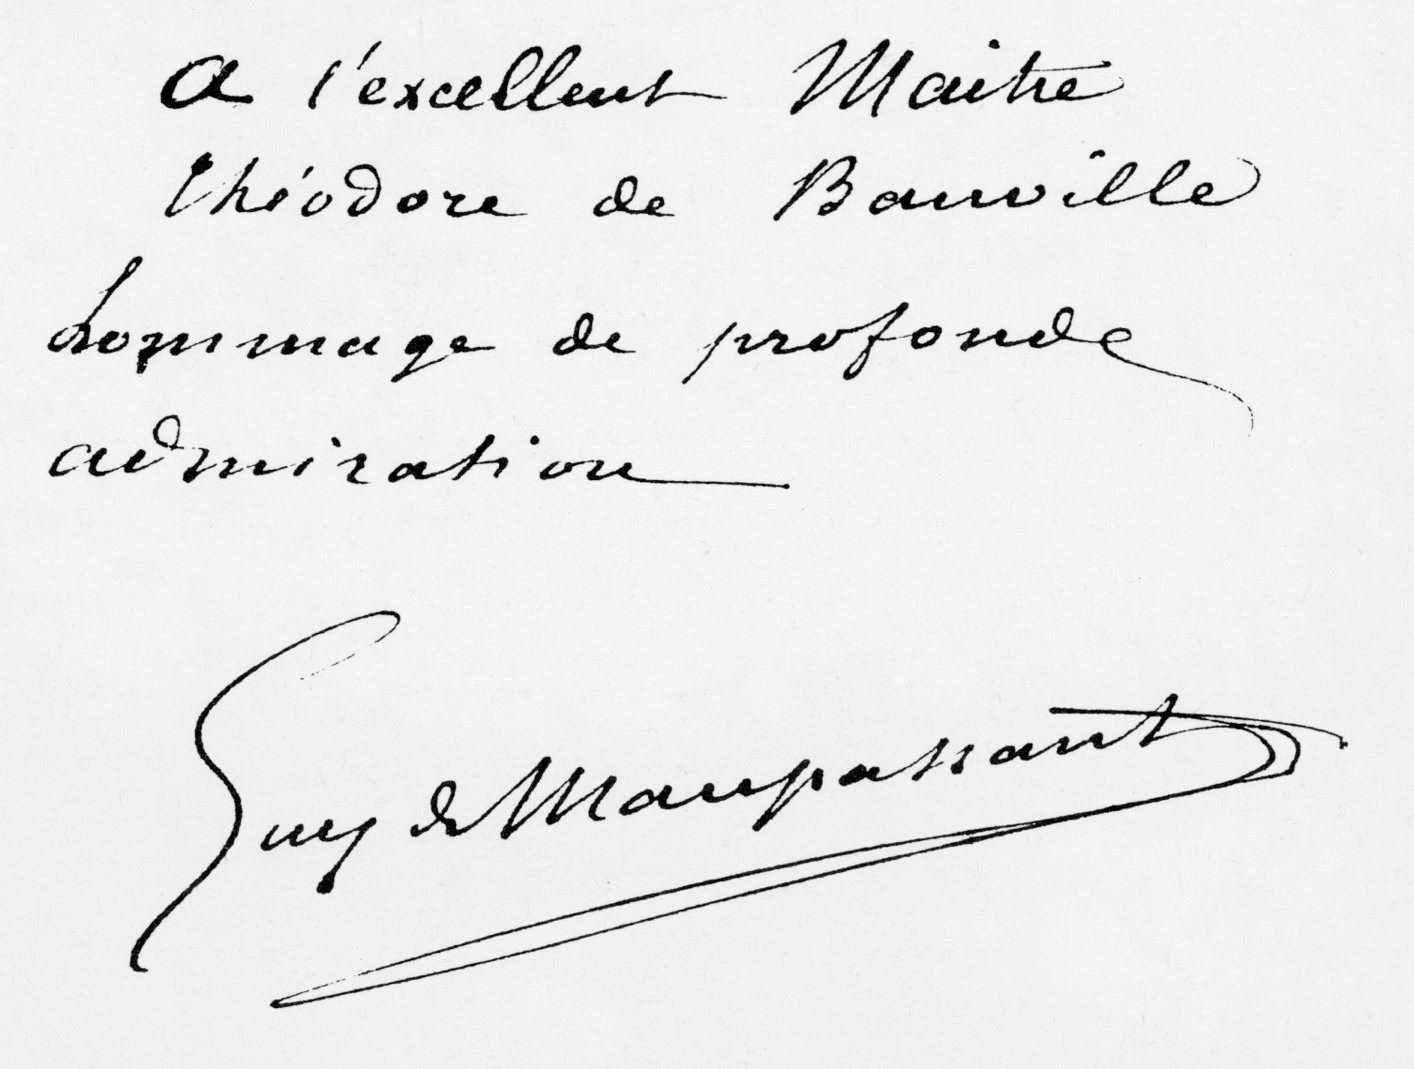 A l'excellent Maitre
Théodore de Banville
hommage de profonde
admiration
Guy de Maupassant